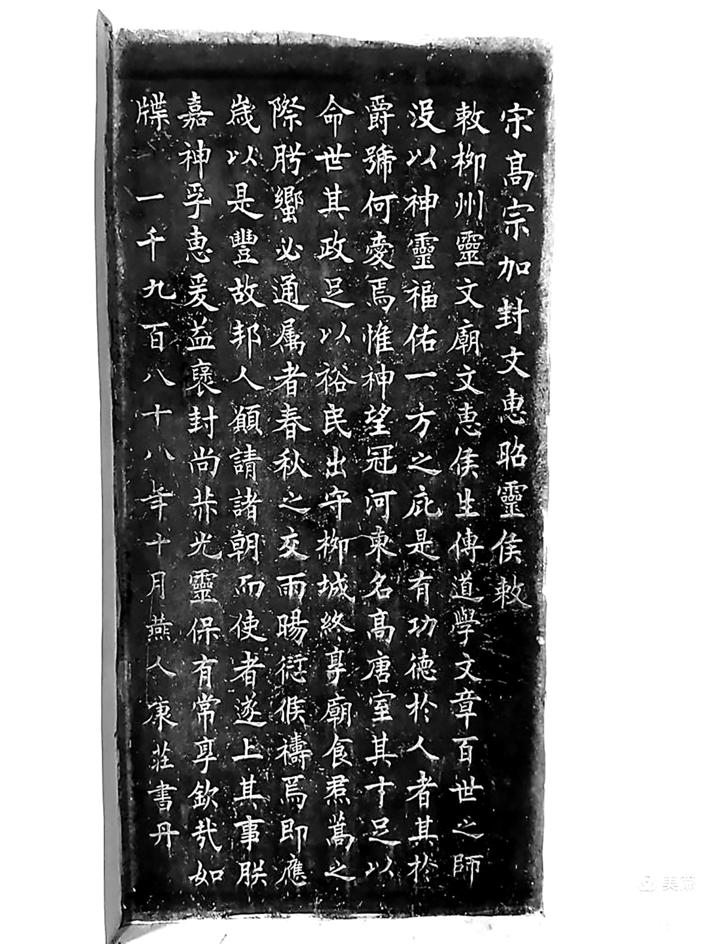 宋高宗加封文惠昭靈侯敕
敕柳州靈文廟文惠侯生傳道學文章百世之師
沒以神靈福佑一方之庇是有功德於人者其於
爵號何愛焉惟神望冠河東名高唐室其才足以
命世其政足以裕民出守柳城終享廟食焄蒿之
際肸蠁必通属者春秋之交雨暘愆候禱焉即應
歲以是豐故邦人願請諸朝而使者遂上其事朕
嘉神孚惠爰益褒封尚冞光靈保有常享欽哉如
牒 一千九百八十八年十月燕人康莊書丹
美篇